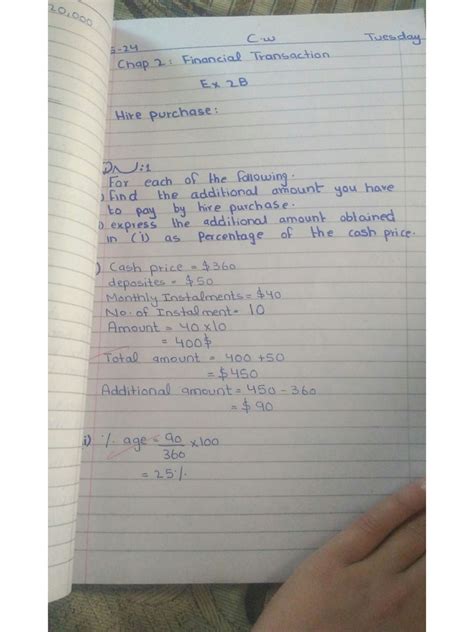 20,000
C.w
5-24 Tuesday
Chap 2: Financial Transaction
Ex 2B
Hire purchase:
:1
For each of the following.
) find the additional amount you have
to pay by hire purchase.
) express the additional amount obtained
in (i) as Percentage of the cash price.
) Cash price = $360
deposites = $50
Monthly Instalments = $40
No. of Instalment = 10
Amount = 40 x10
= 400$
Total amount = 400 +50
= $450
Additional amount = 450 - 360
= $90
i) % age = 90/360 x100
= 25%